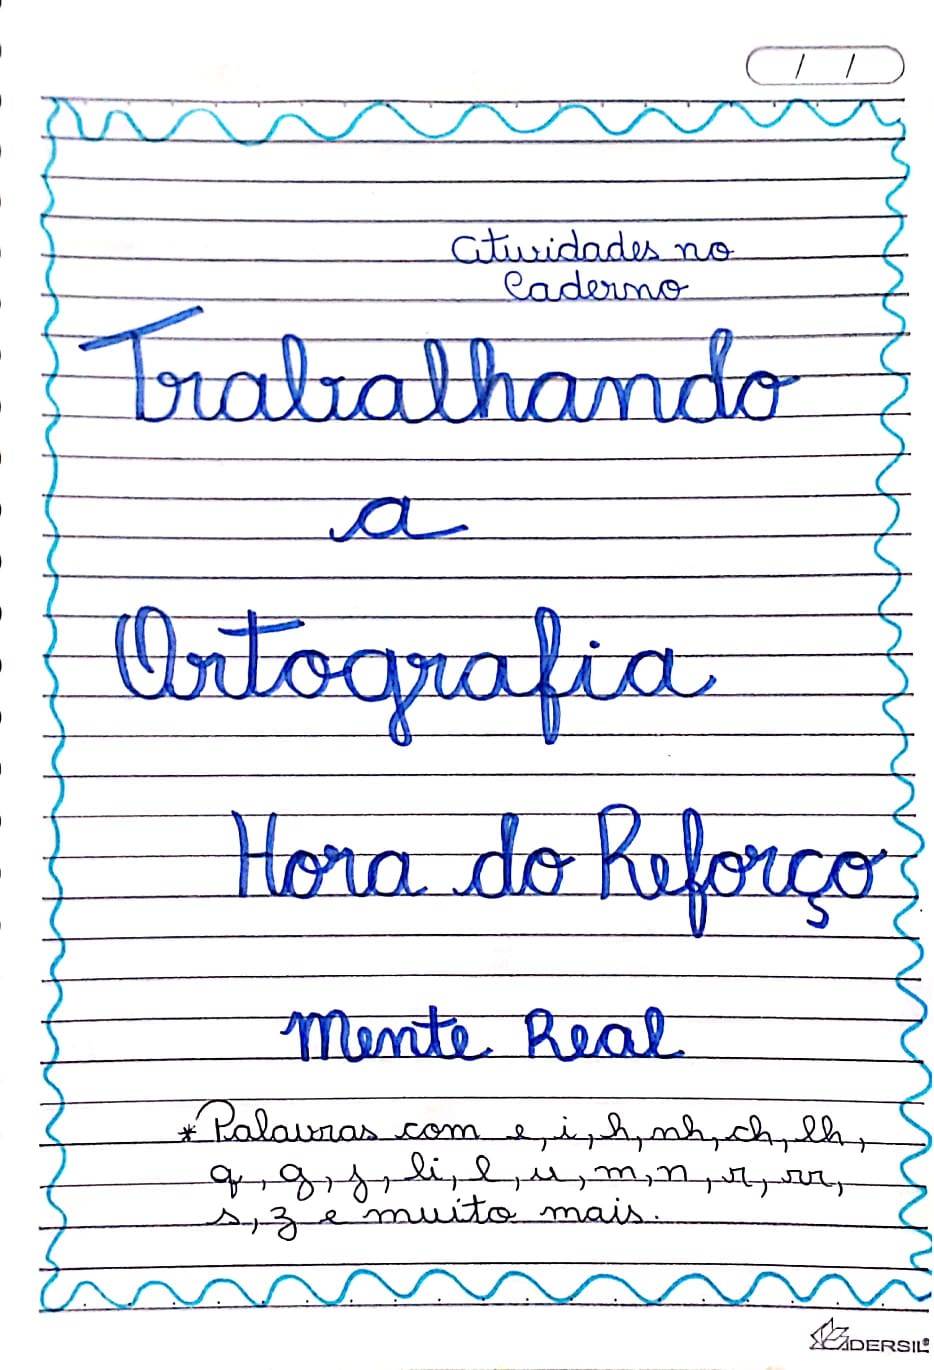 / /
Atividades no
Caderno
Trabalhando
a
Ortografia
Hora do Reforço
Mente Real
* Palavras com e, i, h, nh, ch, lh,
q, g, j, li, l, u, m, n, r, rr,
s, z e muito mais.
DERSIL